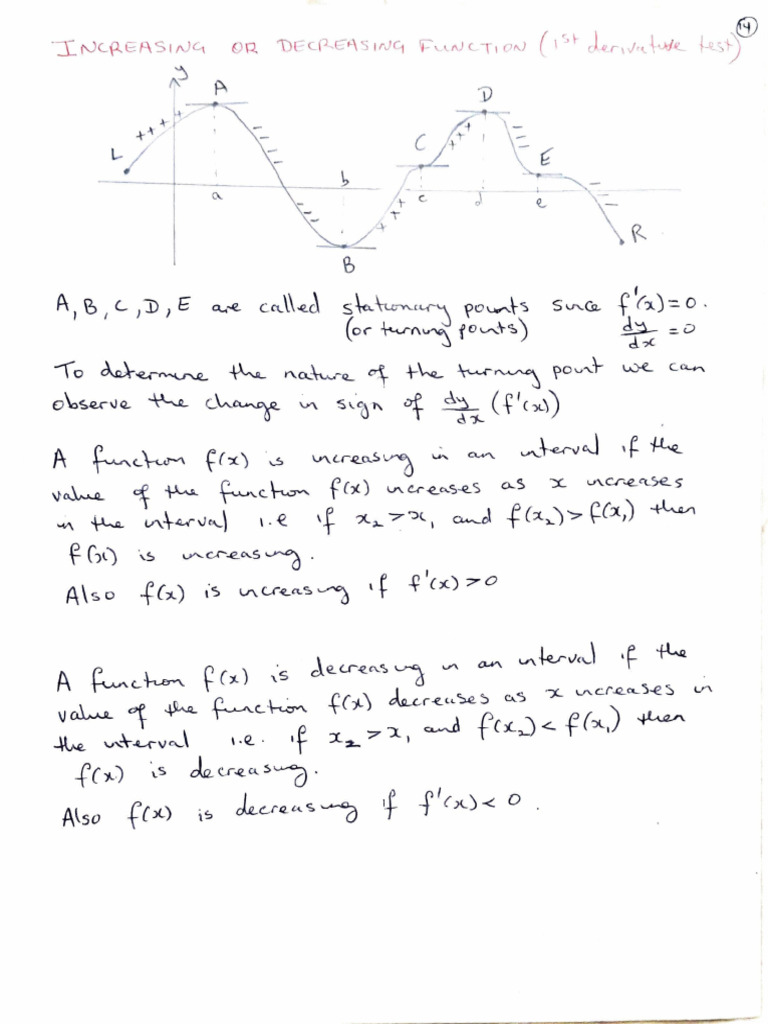 14
INCREASING OR DECREASING FUNCTION (1st derivative test)
y
A
D
L
++++
C
+++
E
b
a
c
d
e
+++
R
B
A, B, C, D, E are called stationary points since f'(x)=0.
(or turning points) dy/dx = 0
To determine the nature of the turning point we can
observe the change in sign of dy/dx (f'(x))
A function f(x) is increasing in an interval if the
value of the function f(x) increases as x increases
in the interval i.e if x₂>x₁ and f(x₂)>f(x₁) then
f(x) is increasing.
Also f(x) is increasing if f'(x)>0
A function f(x) is decreasing in an interval if the
value of the function f(x) decreases as x increases in
the interval i.e. if x₂>x₁ and f(x₂)<f(x₁) then
f(x) is decreasing.
Also f(x) is decreasing if f'(x)<0.